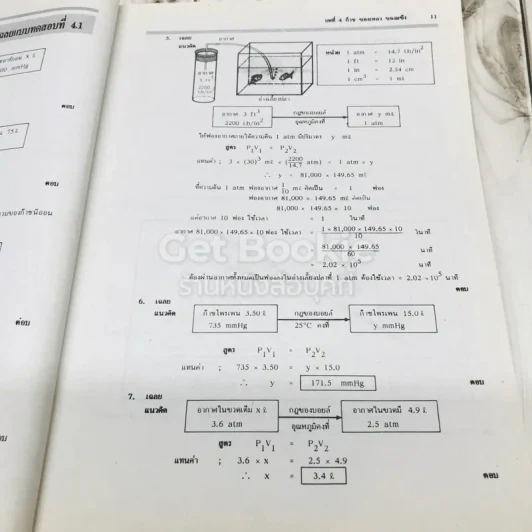 เฉลยแบบทดสอบที่ 4.1
บทที่ 4 ก๊าซ ของเหลว ของแข็ง 11
ตอบ
ตอบ
ตอบ
ตอบ
5. เฉลย
แนวคิด
อากาศ
อากาศ
3 ft³
2200
lb/in²
อ่างเลี้ยงปลา
หน่วย 1 atm = 14.7 lb/in²
1 ft = 12 in
1 in = 2.54 cm
1 cm³ = 1 mℓ
อากาศ 3 ft³
2200 lb/in²
กฎของบอยล์
อุณหภูมิคงที่
อากาศ y mℓ
1 atm
ให้ฟองอากาศภายใต้ความดัน 1 atm มีปริมาตร y mℓ
สูตร P₁V₁ = P₂V₂
แทนค่า ; 3 × (30)³ mℓ × (2200/14.7 atm) = 1 atm × y
∴ y = 81,000 × 149.65 mℓ
ที่ความดัน 1 atm ฟองอากาศ 1/10 mℓ คิดเป็น = 1 ฟอง
ฟองอากาศ 81,000 × 149.65 mℓ คิดเป็น
81,000 × 149.65 × 10 ฟอง
แต่อากาศ 10 ฟอง ใช้เวลา = 1 วินาที
อากาศ 81,000 × 149.65 × 10 ฟอง ใช้เวลา = 1 × 81,000 × 149.65 × 10/10 วินาที
= 81,000 × 149.65/60 นาที
= 2.02 × 10⁵ นาที
∴ ต้องผ่านอากาศทั้งหมดเป็นฟองลงในอ่างเลี้ยงปลาที่ 1 atm ต้องใช้เวลา = 2.02 × 10⁵ นาที
ตอบ
Get Bookie
ร้านหนังสือบุ๊คกี้
6. เฉลย
แนวคิด
ก๊าซโพรเพน 3.50 ℓ
735 mmHg
กฎของบอยล์
25°C คงที่
ก๊าซโพรเพน 15.0 ℓ
y mmHg
สูตร P₁V₁ = P₂V₂
แทนค่า ; 735 × 3.50 = y × 15.0
∴ y = 171.5 mmHg ตอบ
7. เฉลย
แนวคิด
อากาศในขวดเต็ม x ℓ
3.6 atm
กฎของบอยล์
อุณหภูมิคงที่
อากาศในขวดมี 4.9 ℓ
2.5 atm
สูตร P₁V₁ = P₂V₂
แทนค่า ; 3.6 × x = 2.5 × 4.9
∴ x = 3.4 ℓ ตอบ